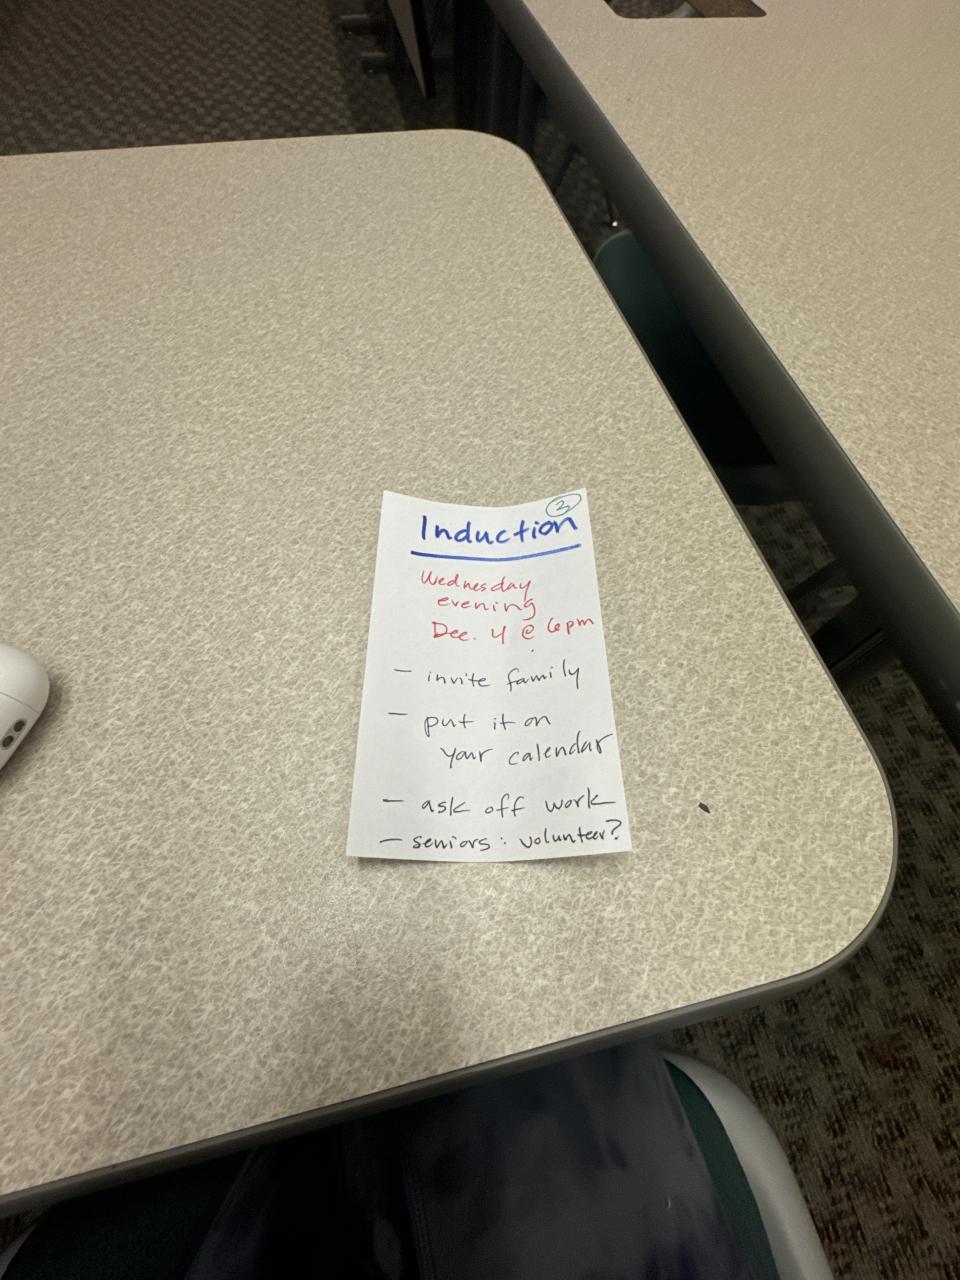 3
Induction
Wednesday
evening
Dec. 4 @ 6pm
- invite family
- put it on
your calendar
- ask off work
- seniors: volunteer?